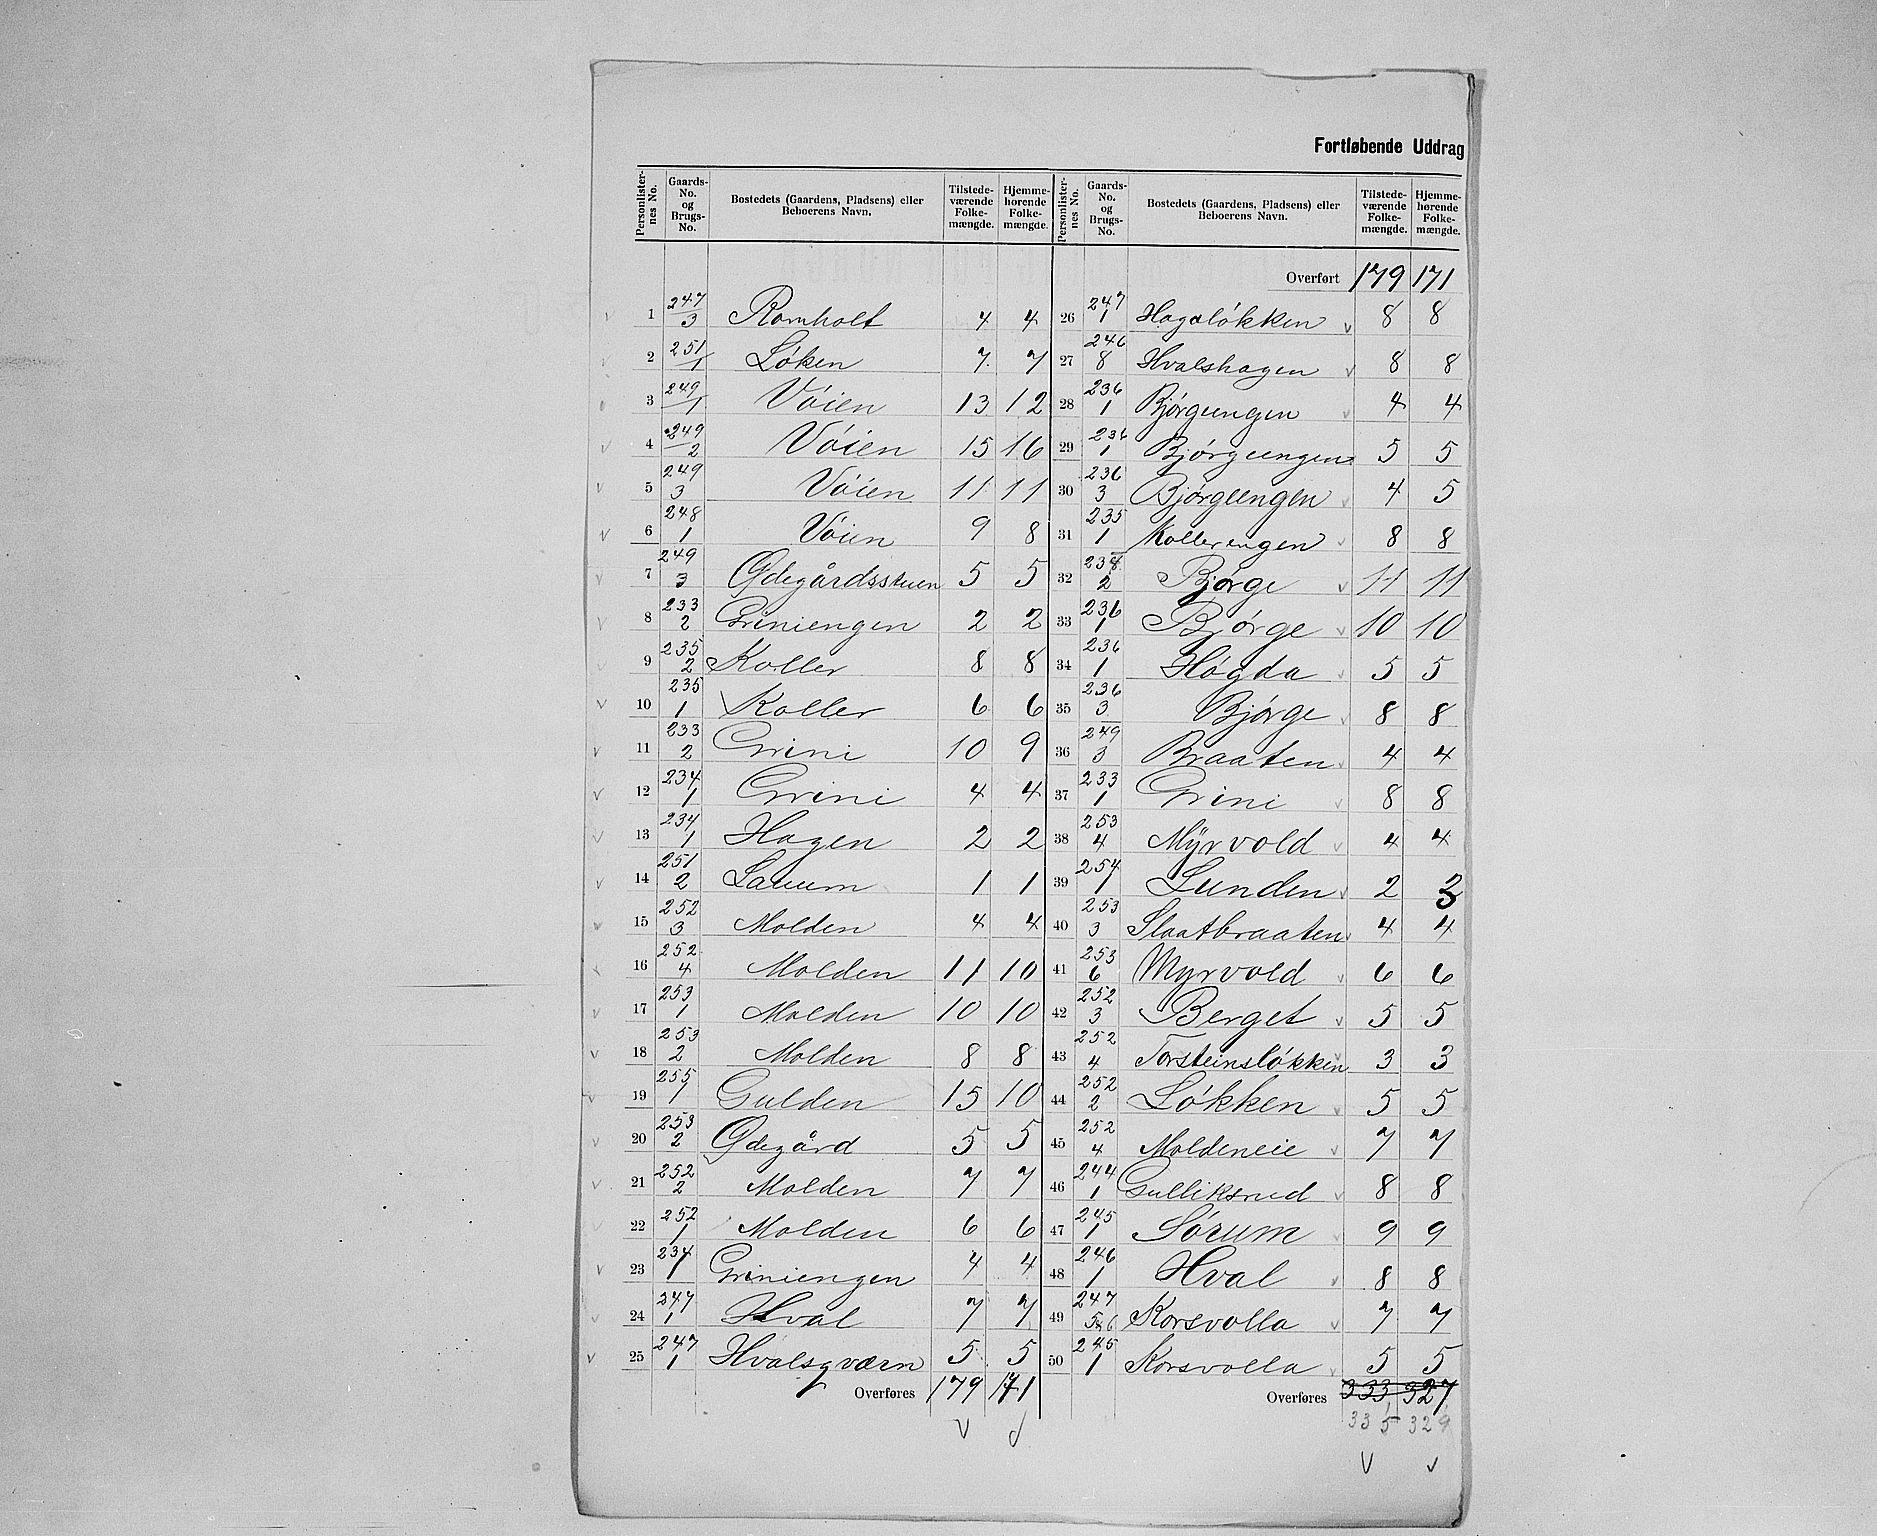 Fortløbende Uddrag
Personlisternes No. | Gaards-No. og Brugs-No. | Bostedets (Gaardens, Pladsens) eller Beboerens Navn. | Tilstedeværende Folkemængde. | Hjemmehørende Folkemængde. | Personlisternes No. | Gaards-No. og Brugs-No. | Bostedets (Gaardens, Pladsens) eller Beboerens Navn. | Tilstedeværende Folkemængde. | Hjemmehørende Folkemængde.
Overført 179 171
1 247/3 Romholt 4 4
2 251/1 Løken 7 7
3 249/1 Vøien 13 12
4 249/2 Vøien 15 16
5 249/3 Vøien 11 11
6 248/1 Vøien 9 8
7 249/3 Ødegårdsstuen 5 5
8 233/2 Griniengen 2 2
9 235/2 Koller 8 8
10 235/1 Koller 6 6
11 233/2 Grini 10 9
12 234/1 Grini 4 4
13 234/1 Hagen 2 2
14 251/2 Lauum 1 1
15 252/3 Molden 4 4
16 252/4 Molden 11 10
17 253/1 Molden 10 10
18 253/2 Molden 8 8
19 255/1 Gulden 15 10
20 253/2 Ødegård 5 5
21 252/2 Molden 7 7
22 252/1 Molden 6 6
23 234/1 Griniengen 4 4
24 247/1 Hval 7 7
25 247/1 Hvalsqværn 5 5
Overføres 179 171
26 247/1 Hagaløkken 8 8
27 246/8 Hvalshagen 8 8
28 236/1 Bjørgeengen 4 4
29 236/1 Bjørgeengen 5 5
30 236/3 Bjørgeengen 4 5
31 235/1 Kollerengen 8 8
32 238/2 Bjørge 11 11
33 236/1 Bjørge 10 10
34 236/1 Høgda 5 5
35 236/3 Bjørge 8 8
36 249/3 Braaten 4 4
37 233/1 Grini 8 8
38 253/4 Myrvold 4 4
39 254/1 Lunden 2 3
40 253/3 Slaatbraaten 4 4
41 253/6 Myrvold 6 6
42 252/3 Berget 5 5
43 252/4 Torsteinsløkken 3 3
44 252/2 Løkken 5 5
45 252/4 Moldeneie 7 7
46 244/1 Gulliksrud 8 8
47 245/1 Sørum 9 9
48 246/1 Hval 8 8
49 247/5 & 6 Korsvolla 7 7
50 245/1 Korsvolla 5 5
Overføres 333 327
335 329